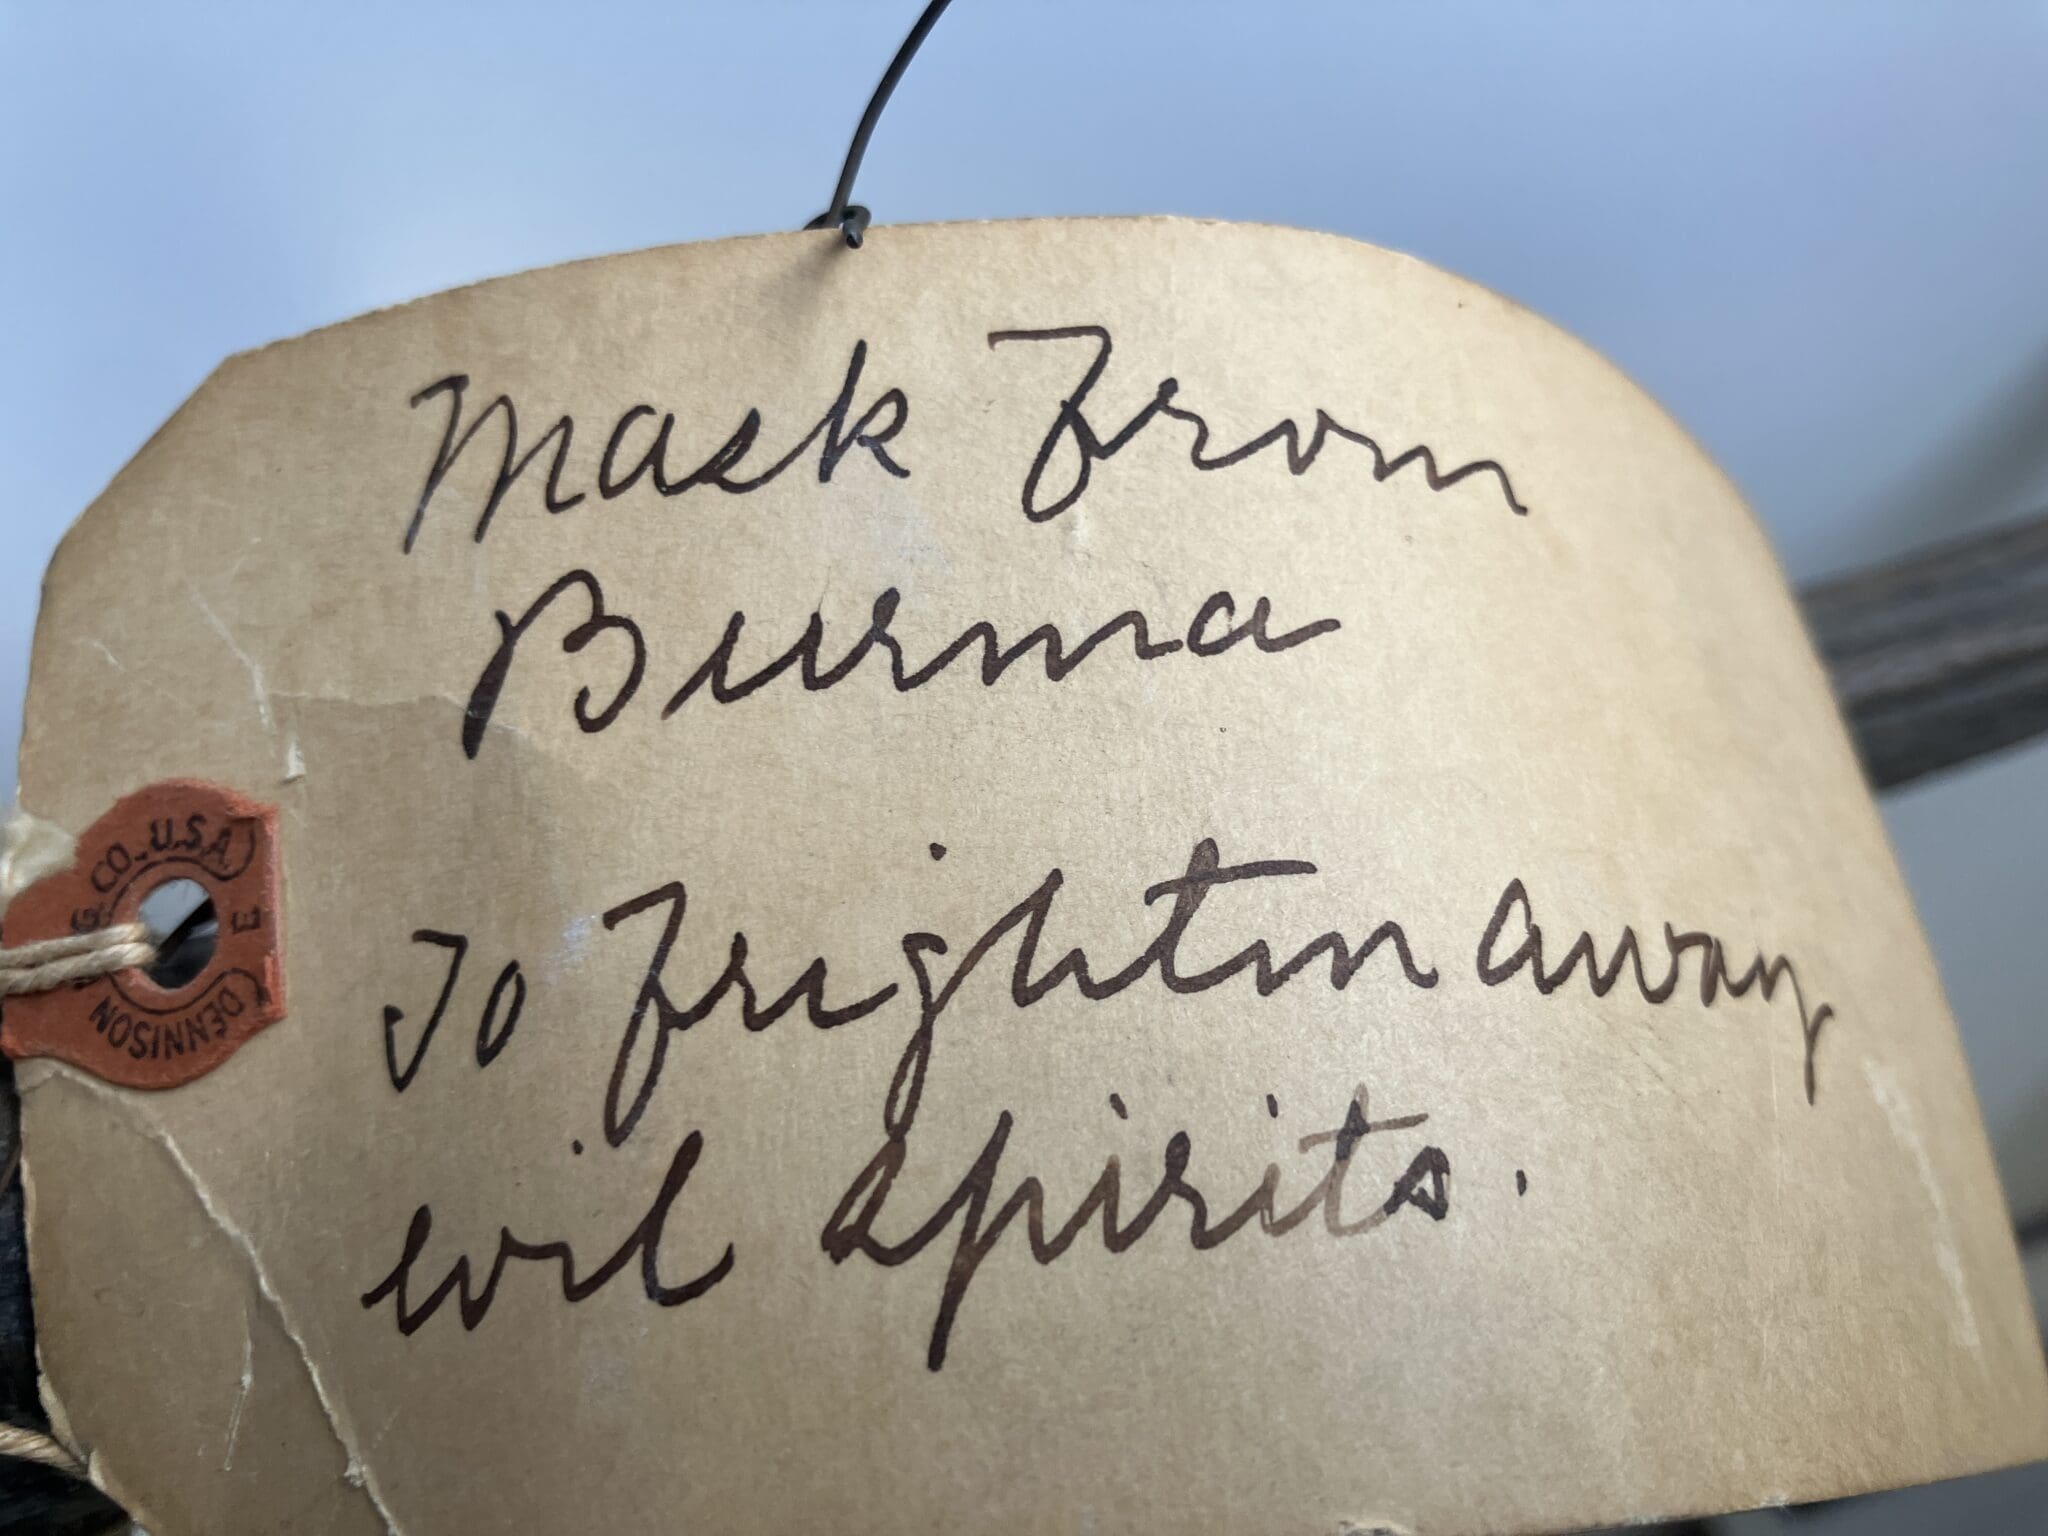 Mask From
Burma
To Frightin away
evil spirits.
DENNISON
CO. U.S.A
E